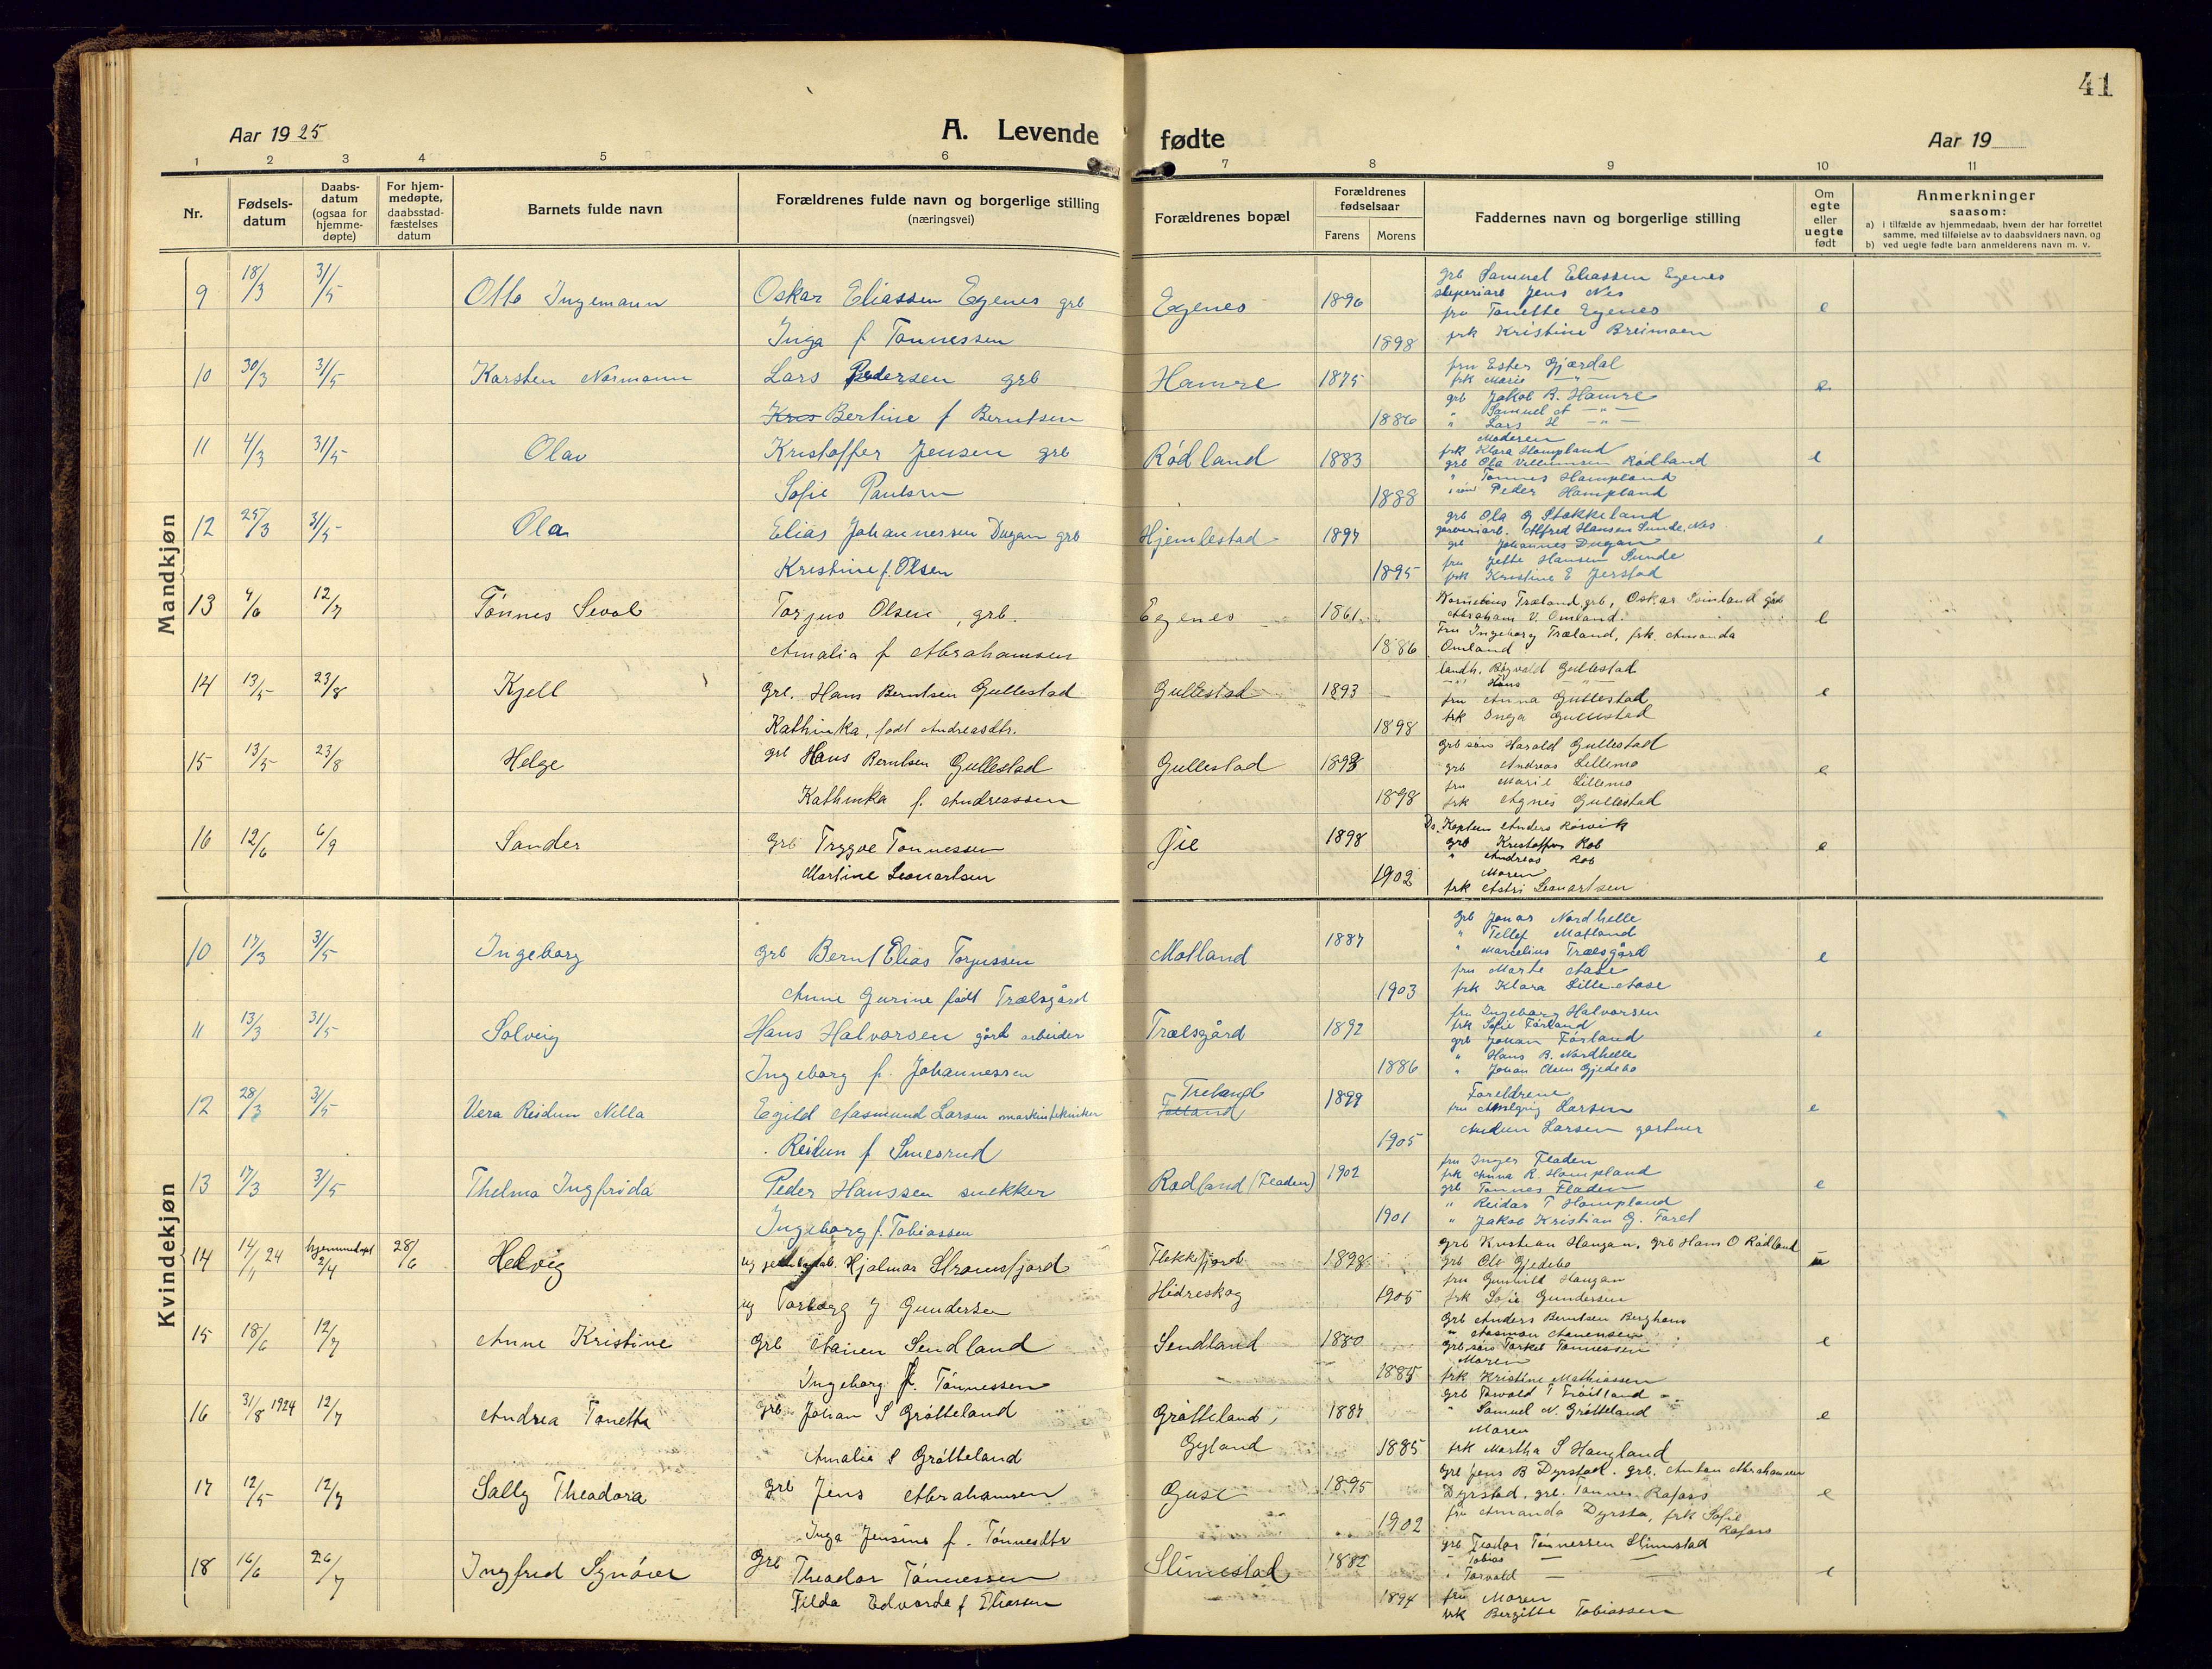 41
Aar 1925
A. Levende fødte
Aar 19
1 2 3 4 5 6 7 8 9 10 11
Nr.
Fødsels-
datum
Daabs-
datum
(ogsaa for
hjemme-
døpte)
For hjem-
medøpte,
daabsstad-
fæstelses
datum
Barnets fulde navn
Forældrenes fulde navn og borgerlige stilling
(næringsvei)
Forældrenes bopæl
Forældrenes
fødselsaar
Farens Morens
Faddernes navn og borgerlige stilling
Om
egte
eller
uegte
født
Anmerkninger
saasom:
a) i tilfælde av hjemmedaab, hvem der har forrettet
samme, med tilføielse av to daabsvidners navn, og
b) ved uegte fødte barn anmelderens navn m. v.
Mandkjøn
9 18/3 31/5 Otto Ingemann Oskar Eliassen Egenes grb Egenes 1896 e
Inga f Tønnessen 1898
grb Samuel Eliassen Egenes
Jens Nes
fru Tonette Egenes
frk Kristine Breimoen
10 30/3 31/5 Karsten Normann Lars Pedersen grb Hamre 1875 e
Bertine f Berntsen 1886
fru Ester Gjærdal
frk Marie — " —
grb Jakob R. Hamre
" Samuel A — " —
" Lars H — " —
11 4/3 31/5 Olav Kristoffer Jensen grb Rødland 1883 e
Sofie Paulsen 1888
Moderen
frk Klara Hampland
grb Ola Villumsen Rødland
" Tønnes Hampland
Peder Hampland
12 25/3 31/5 Ola Elias Johannessen Dugan grb Hjemlestad 1897 e
Kristine f. Olsen 1895
grb Ola G Stakkeland
garveriarb. Alfred Hansen Sunde, Nes
grb Johannes Dugan
fru Jette Hansen Sunde
frk Kristine E Jerstad
13 4/6 12/7 Tønnes Seval Torjus Olsen, grb. Egenes 1861 e
Amalia f Abrahamsen 1886
Kornelius Træland grb, Oskar Svinland grb
Abraham V. Omland.
Fru Ingeborg Træland, frk. Amanda
Omland
14 13/5 23/8 Kjell Grb. Hans Berntsen Gullestad Gullestad 1893 e
Kathinka, født Andreasdtr. 1898
landh. Røgvald Gullestad
— " — Hans — " —
fru Anna Gullestad
frk Inga Gullestad
15 13/5 23/8 Helge grb Hans Berntsen Gullestad Gullestad 1893 e
Kathinka f. Andreassen 1898
grb søn Harald Gullestad
grb Andreas Lillemo
fru Marie Lillemo
frk Agnes Gullestad
16 12/6 6/9 Sander Grb Trygve Tønnessen Øie 1898 e
Martine Leonartsen 1902
Kaptein Anders Røsvik
grb Kristoffer Rob
" Andreas Rob
Moren
frk Astri Leonartsen
Kvindekjøn
10 17/3 31/5 Ingeborg Grb Bernt Elias Torjussen Motland 1887 e
Anne Gurine født Trælsgård 1903
grb Jonas Nordhelle
" Tellef Motland
" Marcelius Trælsgård
fru Marte Aase
frk Klara Lille-Aase
11 13/3 31/5 Solveig Hans Halvorsen gårdarbeider Trælsgård 1892 e
Ingeborg f. Johannessen 1886
fru Ingeborg Halvorsen
frk Sofie Førland
grb Johan Førland
" Hans B. Nordhelle
" Johan Olsen Gjedebo
12 28/3 31/5 Vera Reidun Nilla Egild Aasmund Larsen maskintekniker Treland 1899 e
Reidun f Smesrud 1905
Foreldrene
fru Larsen
Audun Larsen gartner
13 17/3 31/5 Thelma Ingfrida Peder Hanssen snekker Rødland (Fladen) 1902 e
Ingeborg f. Tobiassen 1901
fru Inger Fladen
frk Anna R. Hampland
grb Tønnes Fladen
" Reidar T Hampland
" Jakob Kristian G. Foret
14 14/11 24 hjemmedøpt 2/4 28/6 Helvig Hjalmar Strømsfjord Flekkefjord 1898
ug Torborg J Gundersen Hidreskog 1905
grb Kristian Haugan, grb Hans O Rødland
grb Ole Gjedebo
fru Gunhild Haugan
frk Sofie Gundersen
15 18/6 12/7 Anne Kristine Grb Aanen Sendland Sendland 1880 e
Ingeborg f. Tønnessen 1885
Grb Anders Berntsen Berghom
" Aasman Aanensen
grb søn Torkel Tønnessen
Moren
frk Kristine Mathiassen
16 31/8 1924 12/7 Andrea Tonette Grb Johan S Grøtteland Grøtteland, 1887 e
Amalie S Grøtteland Gyland 1885
" Samuel N. Grøtteland
Moren
frk Martha S Haugland
17 12/5 12/7 Sally Theodora Grb Jens Abrahamsen Guse 1895 e
Inga Jensine f. Tønnesdtr 1902
grb Jens B Dyrstad. grb. Anton Abrahamsen
Dyrstad. grb. Tønnes Rafoss
fru Amanda Dyrstad, frk Sofie
Rafoss
18 16/6 26/7 Ingfred Synøver Grb Theodor Tønnessen Slimestad 1882 e
Tilda Edvarda f Eliassen 1894
grb Teodor Tønnessen Slimestad
" Tobias — —
" Torvald — —
fru Moren
frk Bergitte Tobiassen